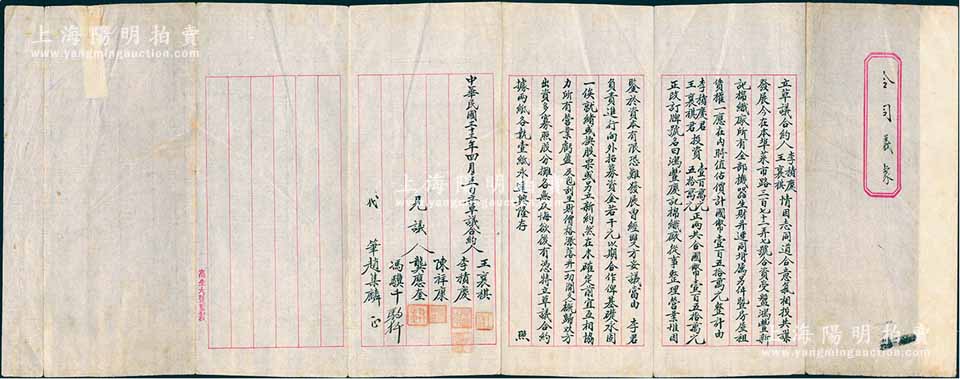 仝司義象
立草議合約人李積慶王襄祺情因志同道合意氣相投共謀
發展今在本埠菜市路二百七十一弄七號合資受盤鴻豐新
記棉織廠所有全部機器生財并連同增屬另件暨房屋租
價權一應在內時值估價計國幣壹百五拾萬元整計由
李積慶君王襄祺君投資壹百萬元五拾萬元正兩共合國幣壹百五拾萬元
正改訂牌號名曰鴻豐慶記棉織廠從事整理營業推因
鑒於資本有限恐難發展曾經雙方妥議當由李君
負責進行向外招募資金若干元以期合作俾基礎永固
一俟就緒或換股票或另立新約然在未確定前宜互相協
力所有營業虧盈及包刮生財價格漲落并一切開支概歸双方
出資多寡照股分攤各無反悔欲後有憑特立草議合約
據兩紙各執壹紙永遠興隆存照
中華民國三十三年四月 日立草議合約人王襄祺
李積慶
見議人陳祥康
龔應奎
馮驥千
代筆趙集麟正
上海陽明拍賣
www.yangmingauction.com
上海陽明拍賣
www.yangmingauction.com